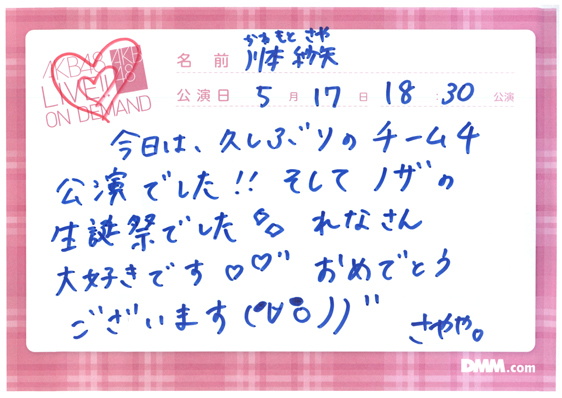 AKB48
LIVE!!
ON DEMAND
AKB
48
かわもと さや
名前 川本 紗矢
公演日 5月17日 18:30 公演
今日は、久しぶりのチーム4
公演でした!! そしてノザの
生誕祭でした れなさん
大好きです♡♡" おめでとう
ございます(°∀°))"
さやや。
DMM.com